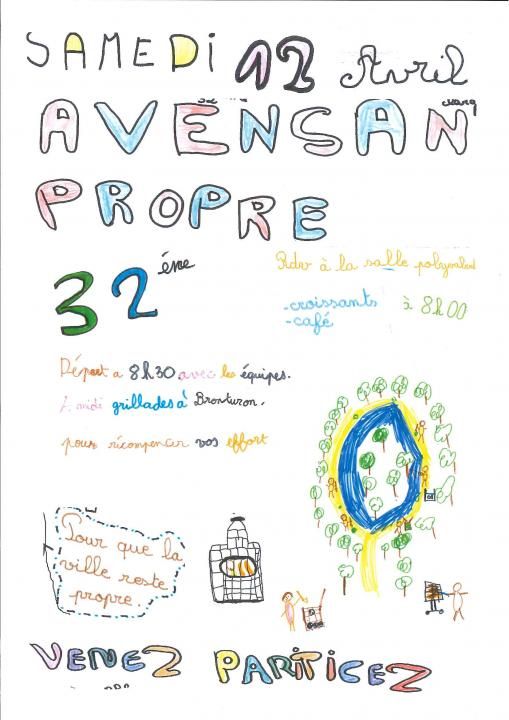 SAMEDI 12 Avril
AVENSAN
PROPRE
32 ème
Rdv à la salle polyvalent
-croissants à 8h00
-café
Départ a 8h30 avec les équipes.
midi grillades à
pour récompencer vos effort
Pour que la
ville reste
propre.
VENEZ PARTICEZ